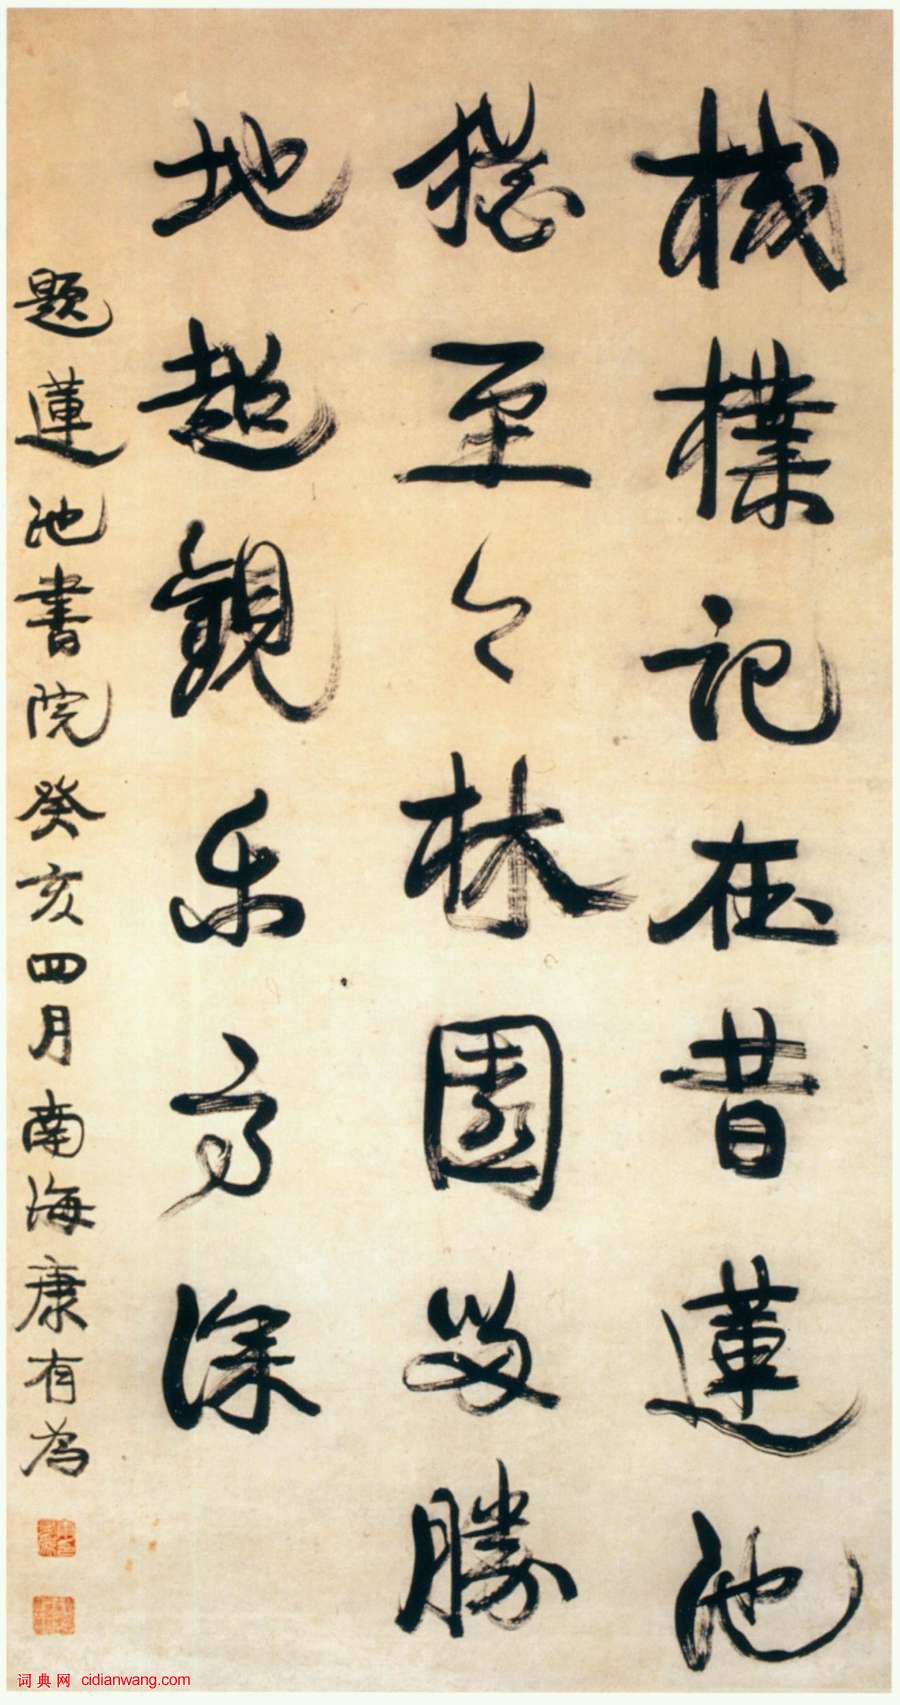 棫樸記在昔蓮池
猶至今林園留勝
地超觀乐高深
題蓮池書院癸亥四月南海康有為
词典网 cidianwang.com